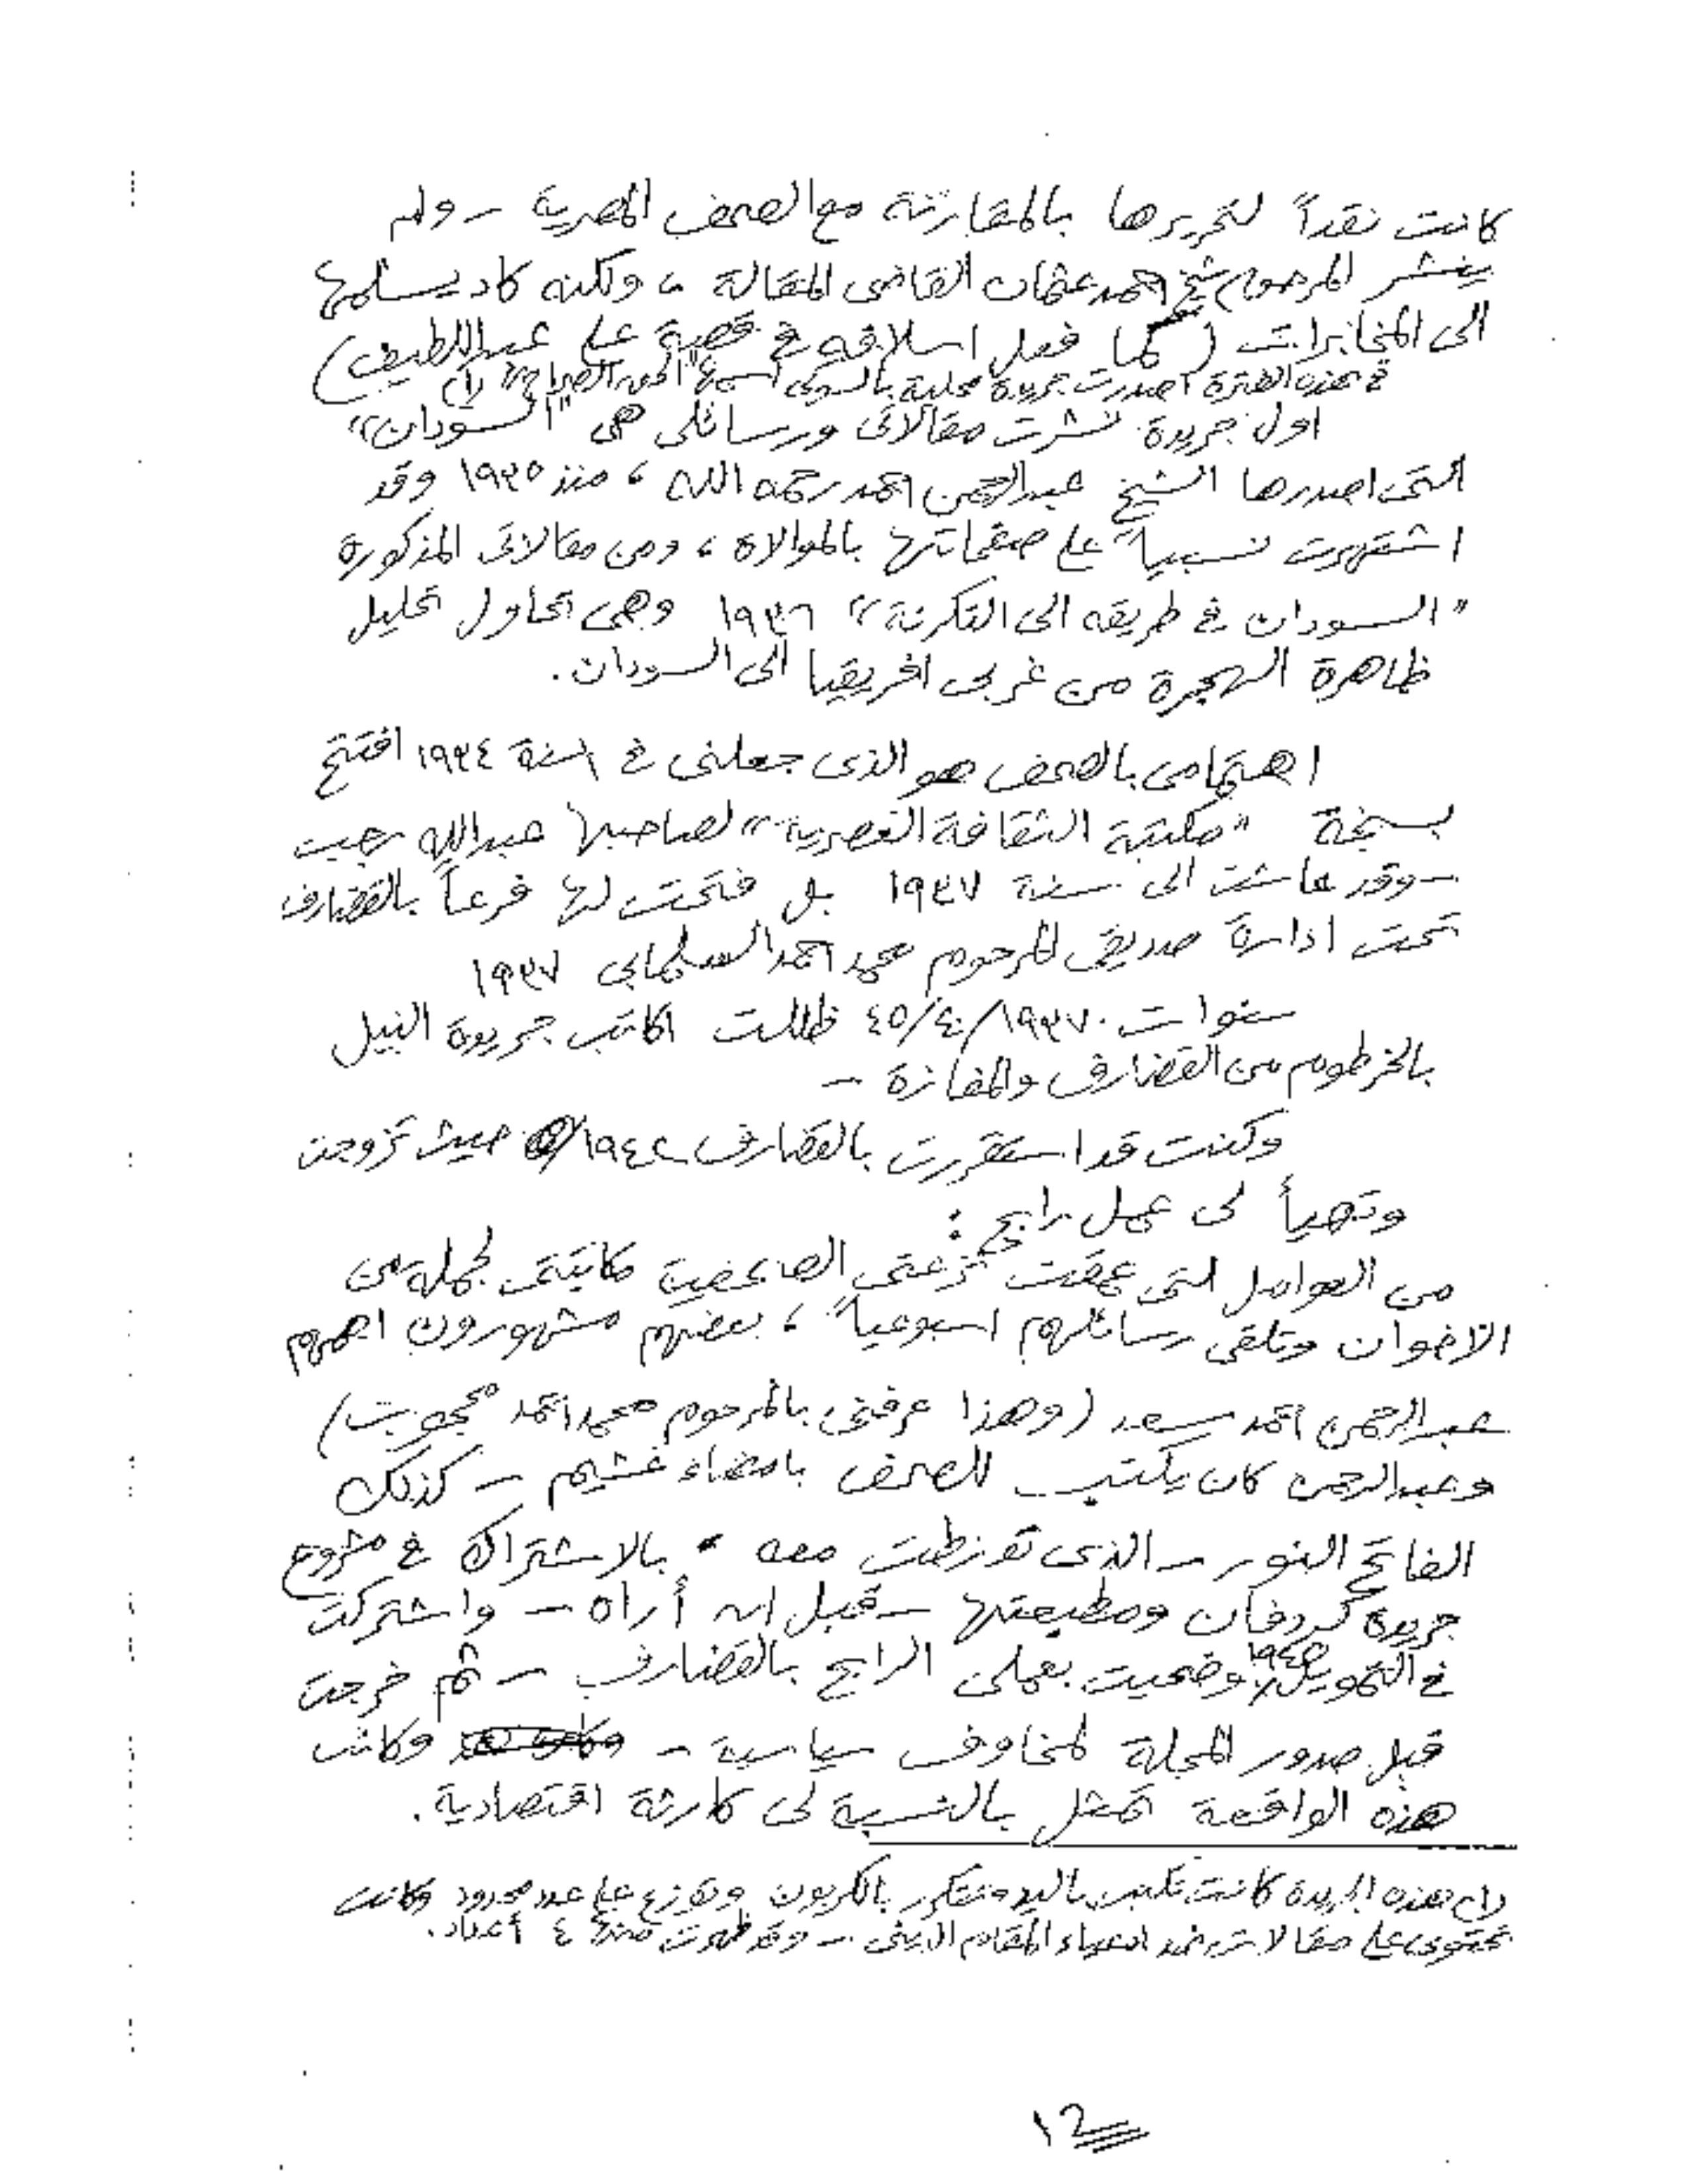 كانت نقداً لتحريرها بالمقارنة مع الصحف المصرية – ولم
ينشر المرحوم شيخ احمد عثمان القاضى المقالة ، ولكنه كاد يسلمها
الى المخابرات (كما فعل اسلافه فى قضية على عبد اللطيف)
فى هذه الفترة اصدرت جريدة محلية بالسوكى اسمها " الصراح" (١)
اول جريدة نشرت مقالاتى ورسائلى هى "السودان"
التى اصدرها الشيخ عبد الرحمن احمد رحمه الله ، منذ ١٩٣٥ وقد
اشتهرت نسبياً على صفحاتها بالموالاة ، ومن مقالاتى المذكورة
"السودان فى طريقه الى التكرنة" ١٩٣٦ وهى تحاول تحليل
ظاهرة الهجرة من غربى افريقيا الى السودان .
اهتمامى بالصحف هو الذى جعلنى فى سنة ١٩٣٤ افتتح
بسنجة "مكتبة الثقافة العصرية" لصاحبها عبد الله رجب
– وقد عاشت الى سنة ١٩٣٧ بل فتحت لها فرعاً بالقضارف
تحت ادارة صديقى المرحوم محمد احمد السلمابى ١٩٣٧
سنوات ١٩٣٧/٤٠/٤٥ ظللت اكاتب جريدة النيل
بالخرطوم من القضارف والمفازة –
وكنت قد استقررت بالقضارف ١٩٤٢ حيث تزوجت
وتهيأ لى عمل رابح :
من العوامل التى عمقت نزعتى الصحفية مكاتبتى لجملة من
الاخوان وتلقى رسائلهم اسبوعياً ، بعضهم مشهورون اهمهم
عبد الرحمن احمد سعد (وهذا عرفنى بالمرحوم محمد احمد محجوب)
وعبد الرحمن كان يكتب للصحف بامضاء غشيم – كذلك
الفاتح النور – الذى تورطت معه بالاشتراك فى مشروع
جريدة كردفان ومطبعتها – قبل ان أراه – واشتركت
فى التمويل ١٩٤٥ وضحيت بعملى الرابح بالقضارف – ثم خرجت
قبل صدور المجلة لمخاوف سياسية – وكانت
هذه الواقعة تمثل بالنسبة لى كارثة اقتصادية .
(١) هذه الجريدة كانت تكتب باليد وتكرر بالكربون وتوزع على عدد محدود وكانت
تحتوى على مقالات ضد ادعياء المقام الدينى – وقد ظهرت منها ٤ أعداد .
١٢